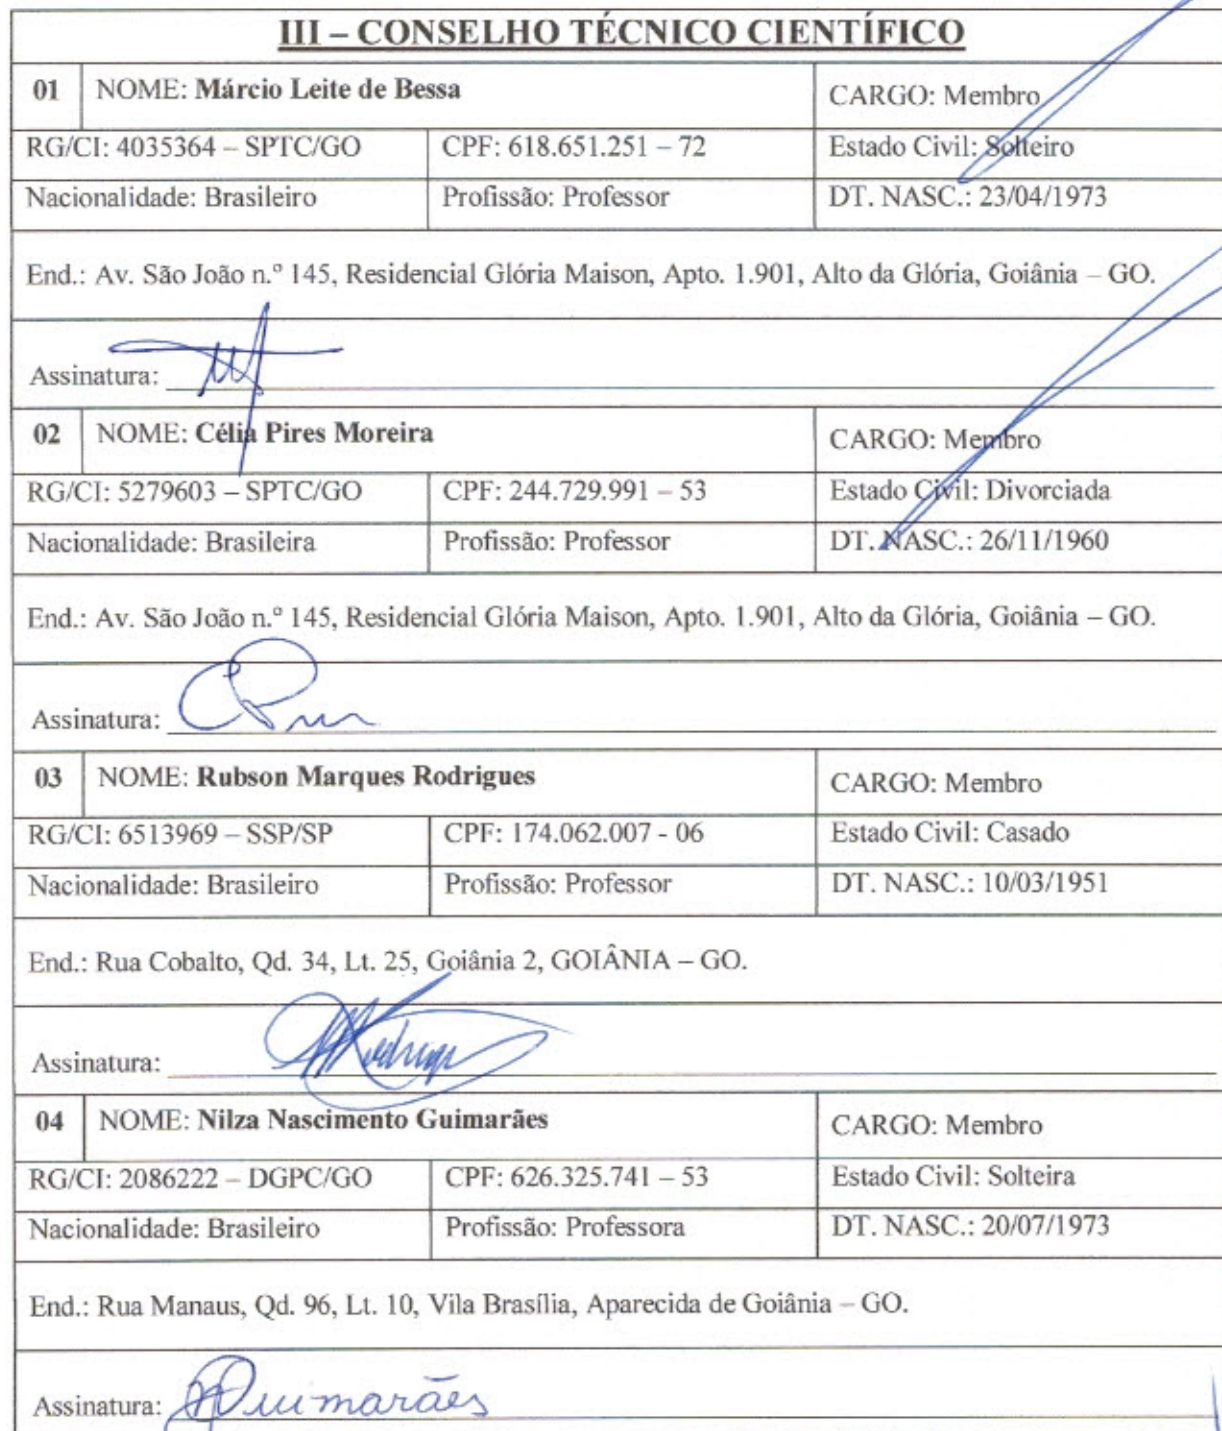 III – CONSELHO TÉCNICO CIENTÍFICO
01 NOME: Márcio Leite de Bessa CARGO: Membro
RG/CI: 4035364 – SPTC/GO CPF: 618.651.251 – 72 Estado Civil: Solteiro
Nacionalidade: Brasileiro Profissão: Professor DT. NASC.: 23/04/1973
End.: Av. São João n.º 145, Residencial Glória Maison, Apto. 1.901, Alto da Glória, Goiânia – GO.
Assinatura:
02 NOME: Célia Pires Moreira CARGO: Membro
RG/CI: 5279603 – SPTC/GO CPF: 244.729.991 – 53 Estado Civil: Divorciada
Nacionalidade: Brasileira Profissão: Professor DT. NASC.: 26/11/1960
End.: Av. São João n.º 145, Residencial Glória Maison, Apto. 1.901, Alto da Glória, Goiânia – GO.
Assinatura:
03 NOME: Rubson Marques Rodrigues CARGO: Membro
RG/CI: 6513969 – SSP/SP CPF: 174.062.007 - 06 Estado Civil: Casado
Nacionalidade: Brasileiro Profissão: Professor DT. NASC.: 10/03/1951
End.: Rua Cobalto, Qd. 34, Lt. 25, Goiânia 2, GOIÂNIA – GO.
Assinatura:
04 NOME: Nilza Nascimento Guimarães CARGO: Membro
RG/CI: 2086222 – DGPC/GO CPF: 626.325.741 – 53 Estado Civil: Solteira
Nacionalidade: Brasileiro Profissão: Professora DT. NASC.: 20/07/1973
End.: Rua Manaus, Qd. 96, Lt. 10, Vila Brasília, Aparecida de Goiânia – GO.
Assinatura: Guimarães